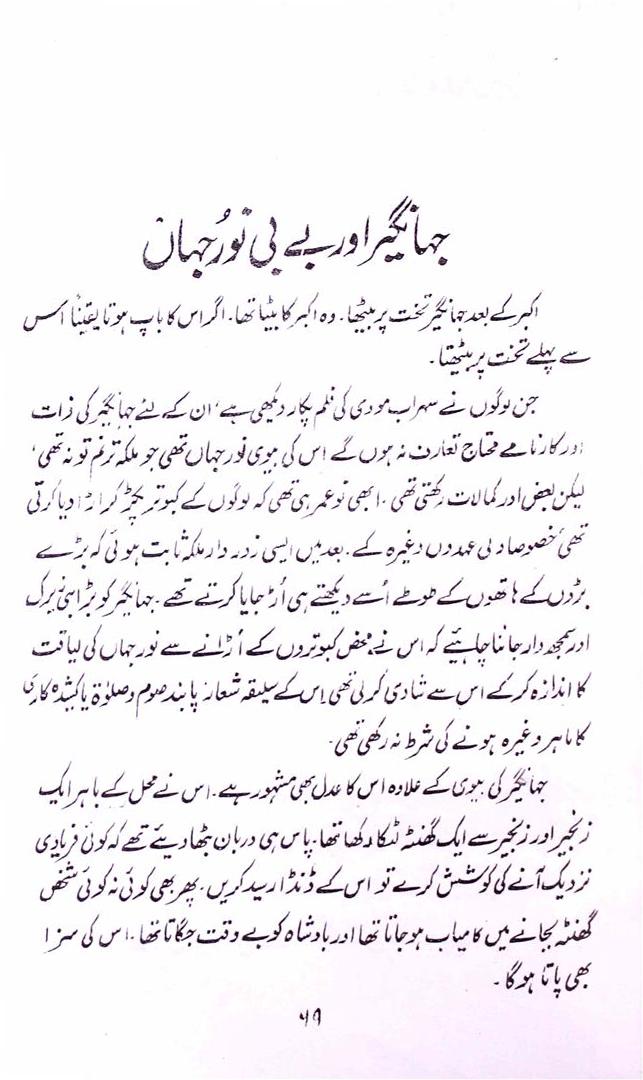 جہانگیر اور بے بی نورُجہاں
اکبر کے بعد جہانگیر تخت پر بیٹھا۔ وہ اکبر کا بیٹا تھا۔ اگر اس کا باپ ہوتا یقیناً اس
سے پہلے تخت پر بیٹھتا۔
جن لوگوں نے سہراب مودی کی فلم پکار دیکھی ہے، ان کے لئے جہانگیر کی ذات
اور کارنامے محتاجِ تعارف نہ ہوں گے اس کی بیوی نور جہاں تھی جو ملکہ ترنم تو نہ تھی،
لیکن بعض اور کمالات رکھتی تھی۔ ابھی نو عمر ہی تھی کہ لوگوں کے کبوتر پکڑ کر اڑا دیا کرتی
تھی خصوصاً ولی عہدوں وغیرہ کے۔ بعد میں ایسی زور دار ملکہ ثابت ہوئی کہ بڑے
بڑوں کے ہاتھوں کے طوطے اُسے دیکھتے ہی اُڑ جایا کرتے تھے۔ جہانگیر کو بڑا ہی زیرک
اور سمجھ دار جاننا چاہیئے کہ اس نے محض کبوتروں کے اُڑانے سے نور جہاں کی لیاقت
کا اندازہ کر کے اس سے شادی کر لی تھی اس کے سلیقہ شعار، پابند صوم و صلوٰۃ یا کشیدہ کاری
کا ماہر وغیرہ ہونے کی شرط نہ رکھی تھی۔
جہانگیر کی بیوی کے علاوہ اس کا عدل بھی مشہور ہے۔ اس نے محل کے باہر ایک
زنجیر اور زنجیر سے ایک گھنٹہ لٹکا رکھا تھا۔ پاس ہی دربان بٹھا دیئے تھے کہ کوئی فریادی
نزدیک آنے کی کوشش کرے تو اس کے ڈنڈا رسید کریں۔ پھر بھی کوئی نہ کوئی شخص
گھنٹہ بجانے میں کامیاب ہو جاتا تھا اور بادشاہ کو بے وقت جگاتا تھا۔ اس کی سزا
بھی پاتا ہوگا۔
۶۹